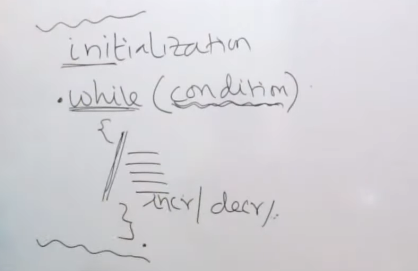 initialization
while (condition)
{
incr/decr/.
}